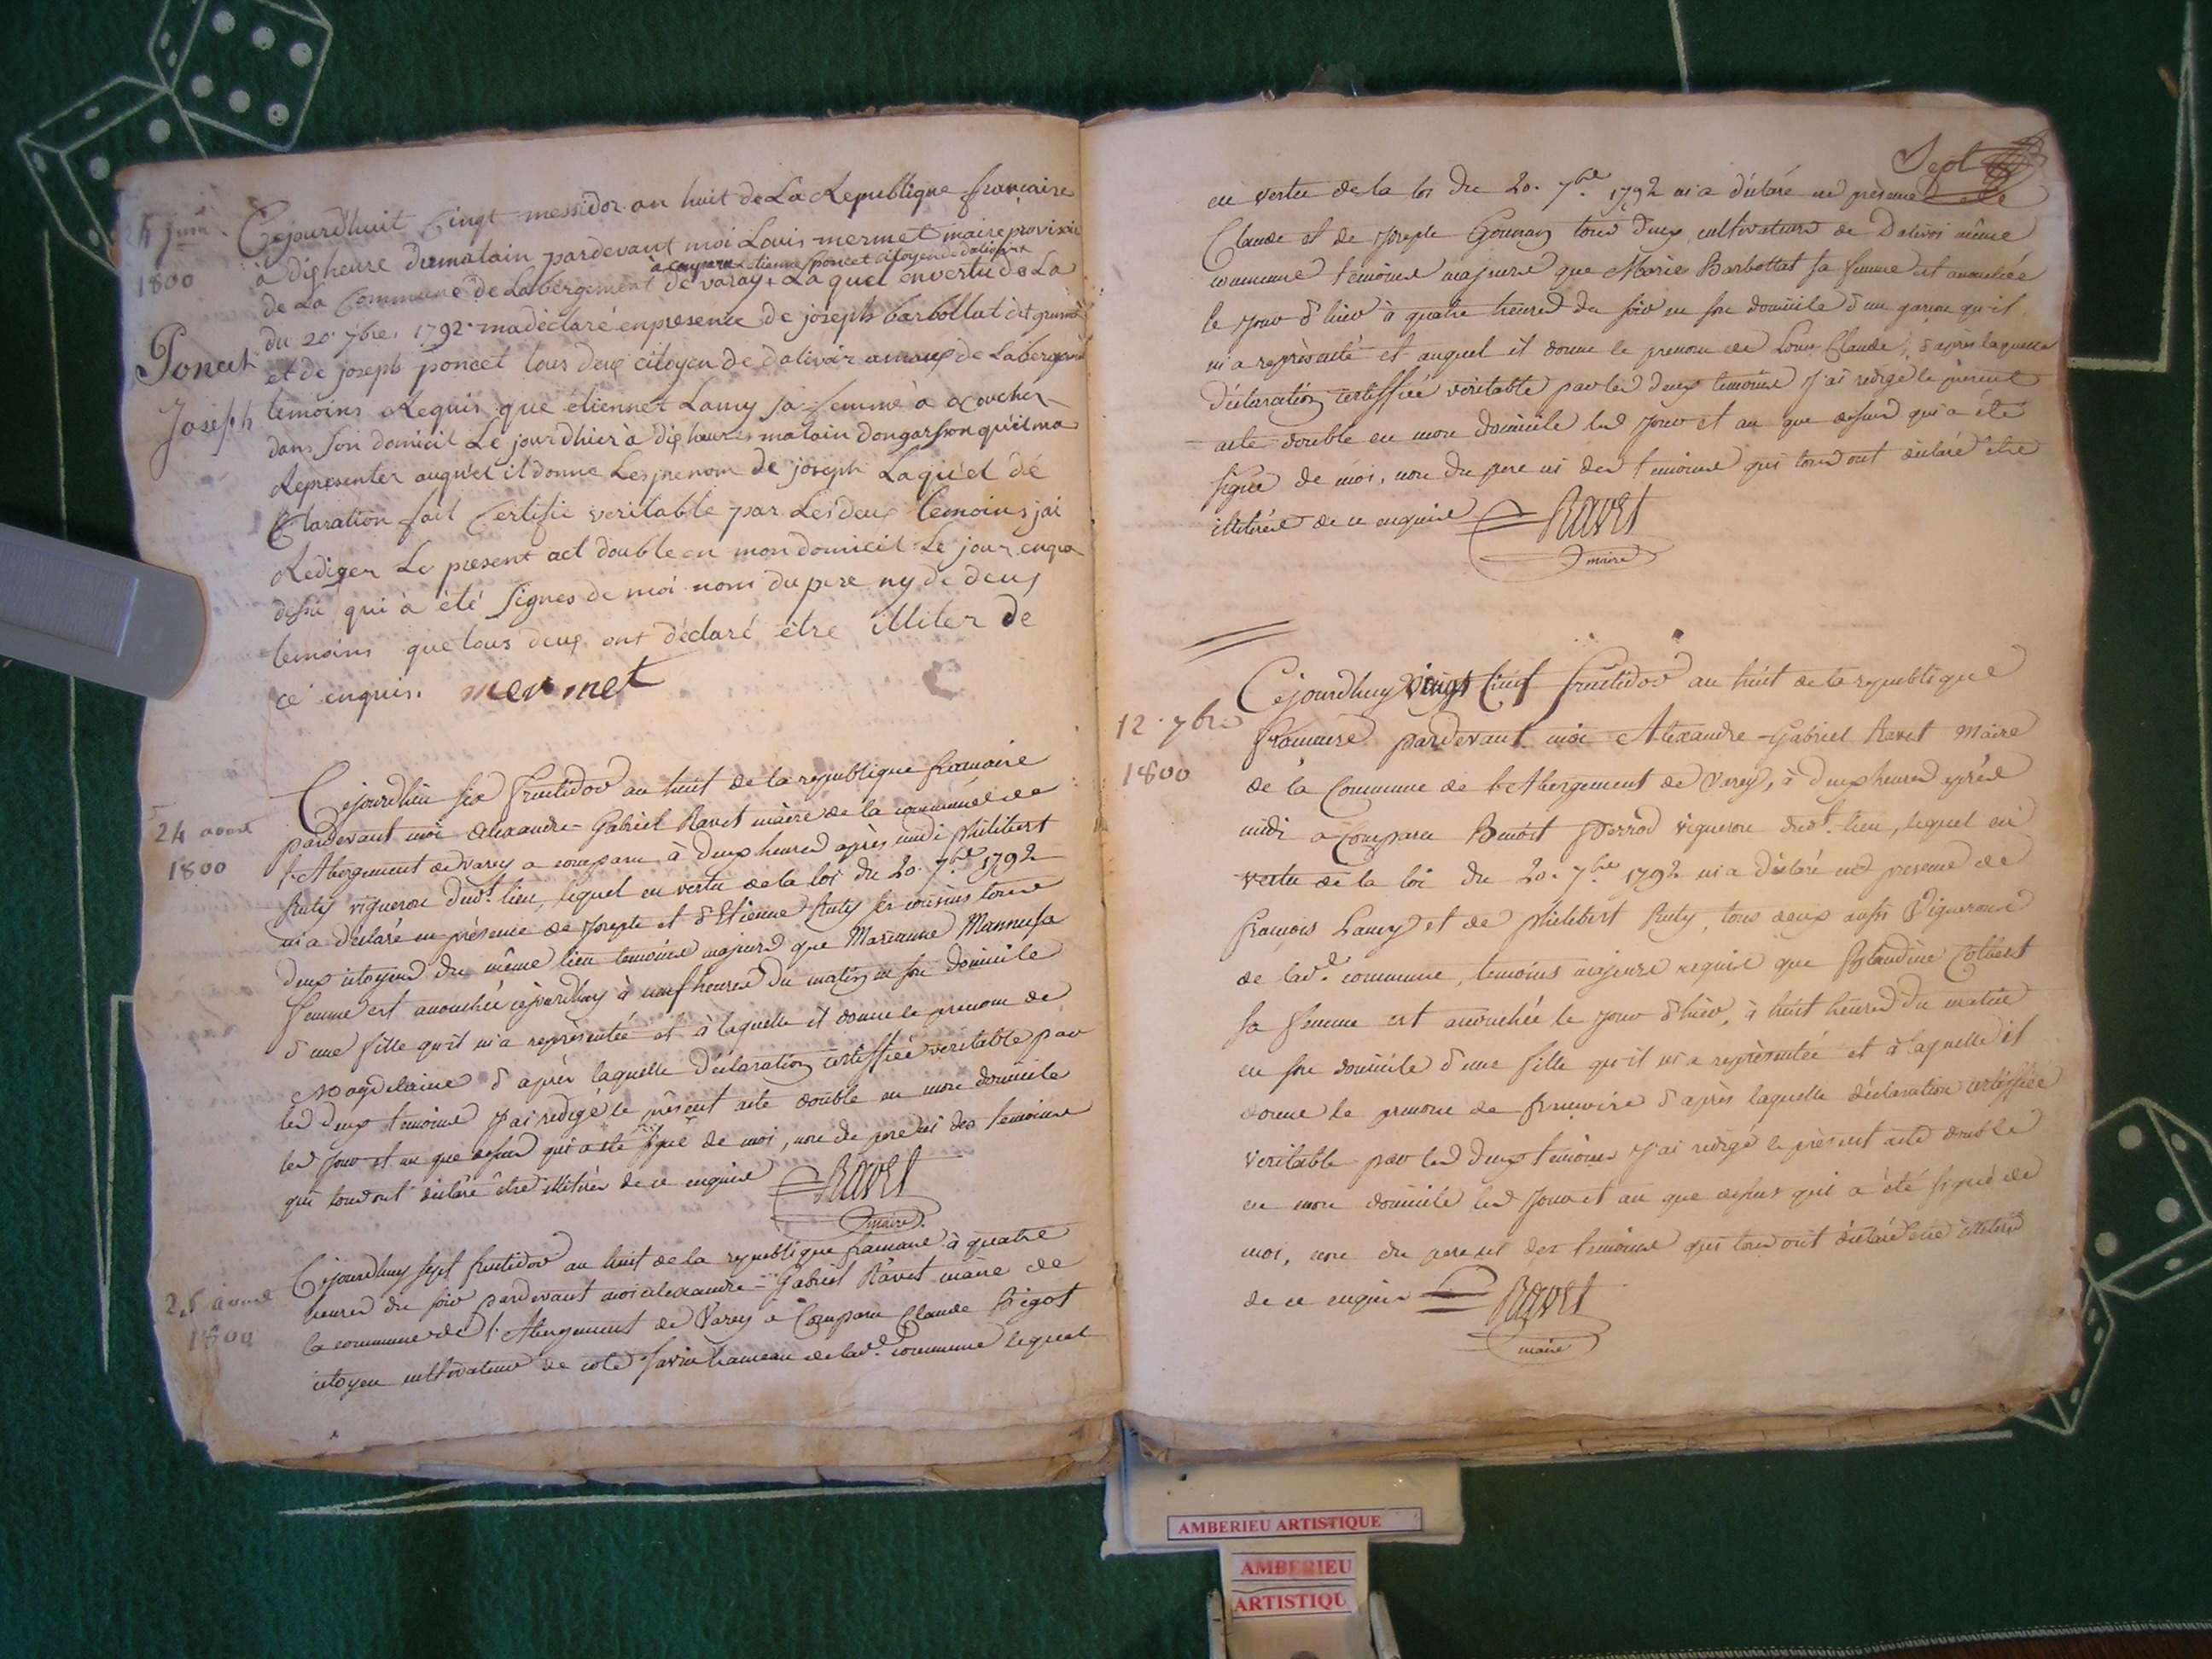 24 juin
1800
Poncet
Joseph
Cejourdhuit Cinqt messidor an huit de La Republique francaire
à dix heure dumatain pardevant moi Louis mermet maire provisoir
à comparu Etienne poncet citoyen de dalivoir
de La Commune de Labergement de varay Laquel envertu de La
du 20 7bre 1792 ma déclaré enpresence de joseph barbollat dit
et de joseph poncet tous deux citoyen de dalivoir amaux de Labergement
temoins Requis que étiennet Lamy sa femme à acoucher
dans son domicil Le jour dhier à dix heures matain dongarsson qu'il ma
Representer auquel il donne Les prenom de joseph Laquel dé
Claration fait Certifie veritable par Les deux temoins jai
Rediger Le present act double en mon domicil Le jour enque
dessu qui à été signes de moi nom du pere ny de deux
temoins que tous deux ont déclaré être illiter de
ce enquis. mermet
24 aout
1800
Cejourdhui six fructidor an huit de la republique francaise
pardevant moi Alexandre-Gabriel Ravet maire de la commune de
l'Abergement de varey a comparu à deux heures après midi philibert
Ruty vigneron dudt. lieu, lequel en vertu de la loi du 20. 7bre 1792
m'a déclaré en présence de Joseph et d'Etienne Ruty ses cousins tous
deux citoyens du même lieu temoins majeurs que Marianne Mannu sa
femme est accouchée cejourdhuy à neuf heures du matin en son domicile
d'une fille qu'il m'a représentée et à laquelle il donne le prenom de
Magdelaine d'après laquelle déclaration certiffiée veritable par
les deux temoins j'ai redigé le présent acte double en mon domicile
les jour et an que dessus qui a été signé de moi, non du pere ni des temoins
qui tous ont déclaré être illitérés de ce enquis Ravet
maire
25 aout
1800
Cejourdhuy sept fructidor an huit de la republique francaise à quatre
heures du soir pardevant moi alexandre-Gabriel Ravet maire de
la commune de l'Abergement de Varey a Comparu Claude Bigot
citoyen cultivateur de cote savin hameau de lad. commune lequel
Sept
en vertu de la loi du 20. 7bre 1792 m'a déclaré en présence de
Claude et de Joseph Gounan tous deux cultivateurs de Dalivoi même
commune temoins majeurs que Marie Barbollat sa femme est accouchée
le jour d'hier à quatre heures du soir en son domicile d'un garcon qu'il
m'a représenté et auquel il donne le prenom de Louis Claude, d'après laquelle
déclaration certiffiée véritable par les deux temoins j'ai redigé le présent
acte double en mon domicile les jour et an que dessus qui a été
signé de moi, non du pere ni des temoins qui tous ont déclaré être
illitérés de ce enquis Ravet
maire
12. 7bre
1800
Cejourdhuy vingt cinq fructidor an huit de la republique
francaise pardevant moi Alexandre-Gabriel Ravet Maire
de la Commune de l'Abergement de Varey, à deux heures après
midi a comparu Benoit perrod vigneron dudt. lieu, lequel en
vertu de la loi du 20. 7bre 1792 m'a déclaré en presence de
françois Lamy et de philibert Ruty, tous deux aussi Vignerons
de lad. commune, temoins majeurs requis que Claudine Colbert
sa femme est accouchée le jour d'hier, à huit heures du matin
en son domicile d'une fille qu'il m'a représentée et à laquelle il
donne le prenom de francoise d'après laquelle déclaration certiffiée
veritable par les deux temoins j'ai redigé le présent acte double
en mon domicile les jour et an que dessus qui a été signé de
moi, non du pere ni des temoins qui tous ont déclaré être illitérés
de ce enquis Ravet
maire
AMBERIEU ARTISTIQUE
AMBERIEU
ARTISTIQU